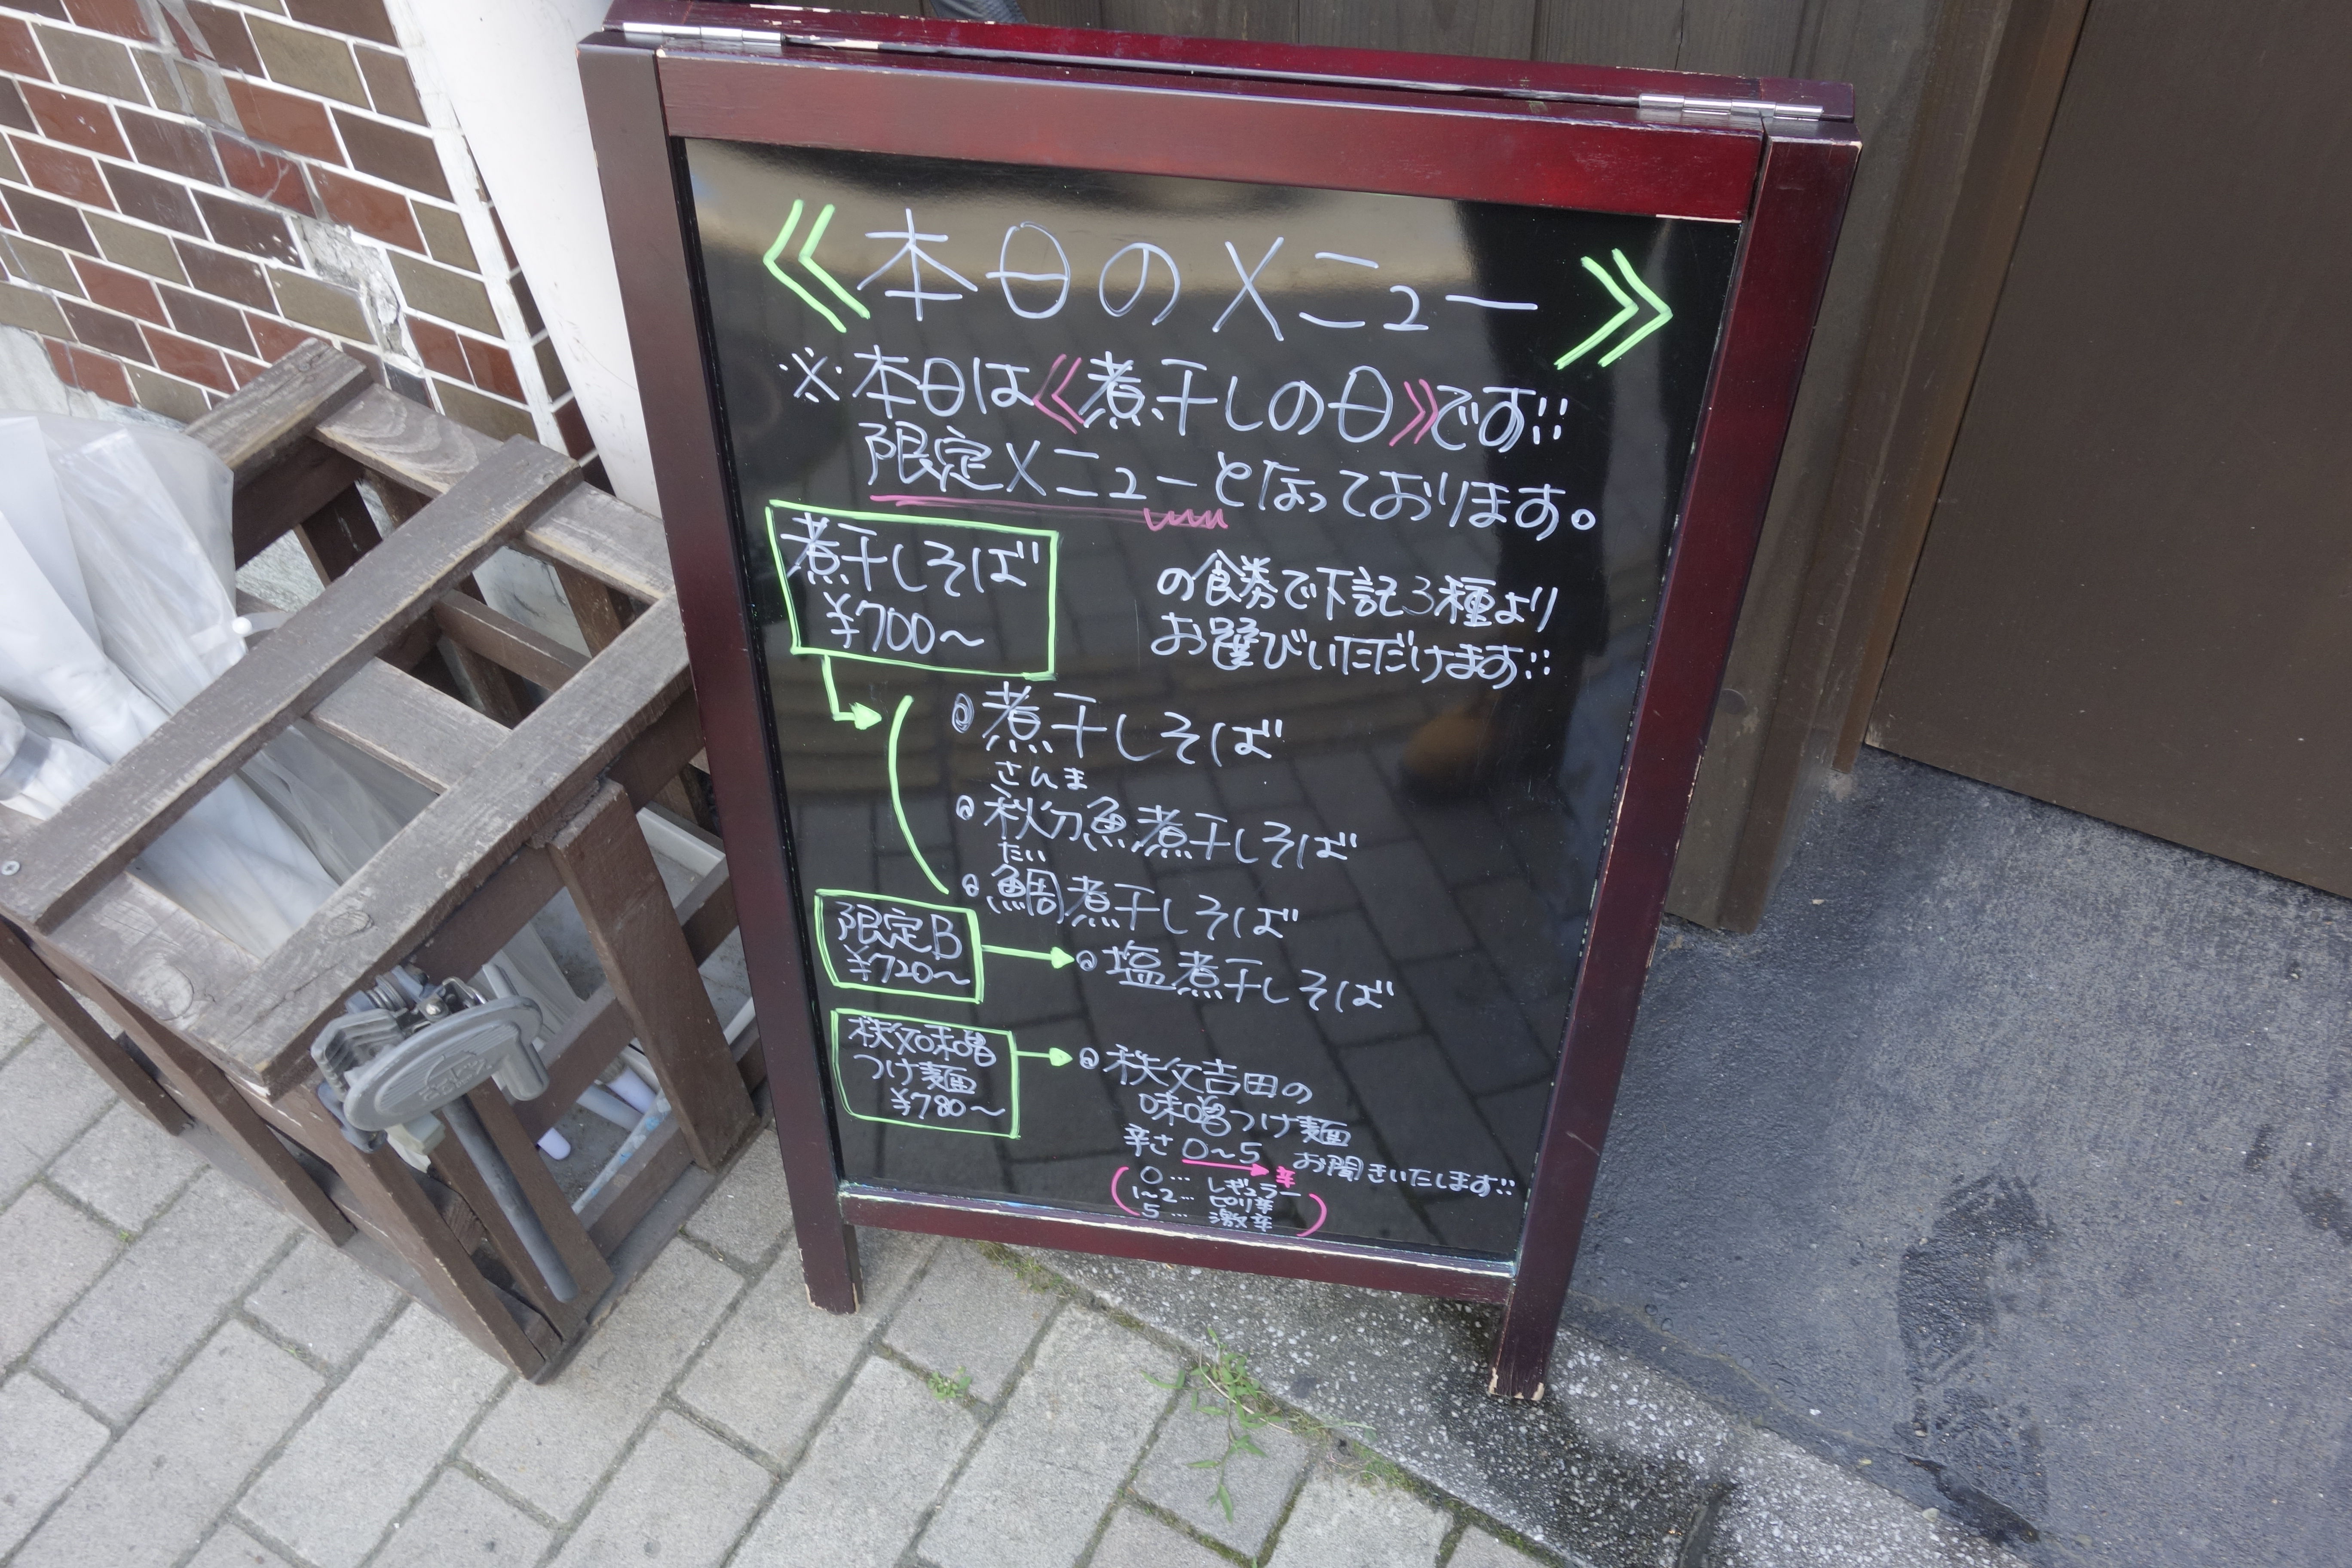 ≪本日のメニュー≫
※本日は≪煮干しの日≫です!!
限定メニューとなっております。
煮干しそば
¥700～
の食券で下記3種より
お選びいただけます!!
◎煮干しそば
さんま
◎秋刀魚煮干しそば
たい
◎鯛煮干しそば
限定B
¥720～
◎塩煮干しそば
秩父味噌
つけ麺
¥780～
◎秩父吉田の
味噌つけ麺
辛さ 0～5 お聞きいたします!!
辛
0… レギュラー
1~2… ピリ辛
5… 激辛